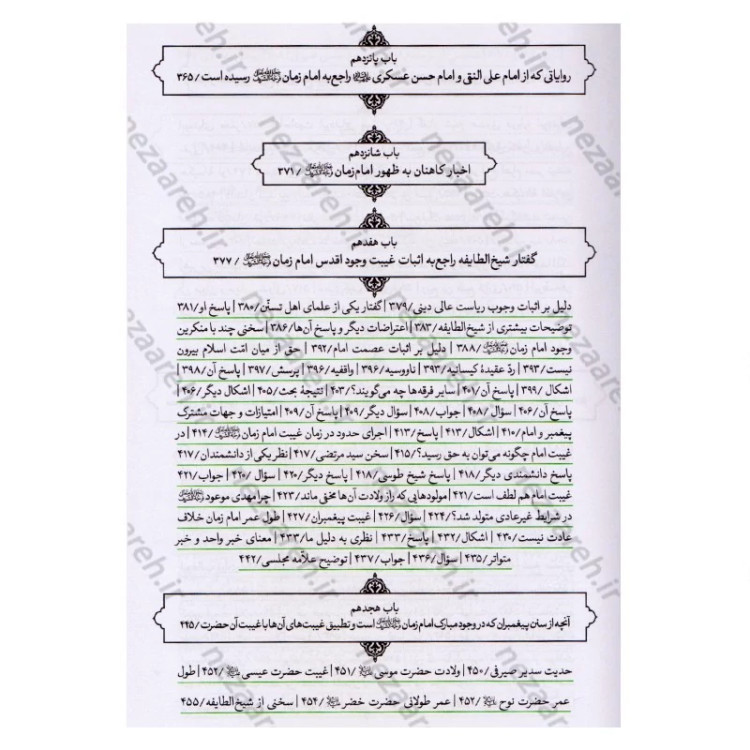 باب پانزدهم
روایاتی که از امام علی النقی و امام حسن عسکری علیهما السلام راجع به امام زمان رسیده است / ۳۶۵
باب شانزدهم
اخبار کاهنان به ظهور امام زمان / ۳۷۱
باب هفدهم
گفتار شیخ الطایفه راجع به اثبات غیبت وجود اقدس امام زمان / ۳۷۷
دلیل بر اثبات وجوب ریاست عالی دینی/۳۷۹ | گفتار یکی از علمای اهل تسنّن/۳۸۰ | پاسخ او/۳۸۱
توضیحات بیشتری از شیخ الطایفه/۳۸۳ | اعتراضات دیگر و پاسخ آن‌ها/۳۸۶ | سخنی چند با منکرین
وجود امام زمان /۳۸۸ | دلیل بر اثبات عصمت امام/۳۹۲ | حق از میان امّت اسلام بیرون
نیست/۳۹۳ | ردّ عقیدهٔ کیسانیه/۳۹۳ | ناووسیه/۳۹۶ | واقفیه/۳۹۶ | پرسش/۳۹۷ | پاسخ آن/۳۹۸ |
اشکال/۳۹۹ | پاسخ آن/۴۰۱ | سایر فرقه‌ها چه می‌گویند؟/۴۰۳ | نتیجهٔ بحث/۴۰۵ | اشکال دیگر/۴۰۶ |
پاسخ آن/۴۰۶ | سؤال/۴۰۸ | جواب/۴۰۸ | سؤال دیگر/۴۰۹ | پاسخ آن/۴۰۹ | امتیازات و جهات مشترک
پیغمبر و امام/۴۱۰ | اشکال/۴۱۳ | پاسخ/۴۱۳ | اجرای حدود در زمان غیبت امام زمان /۴۱۴ | در
غیبت امام چگونه می‌توان به حق رسید؟/۴۱۵ | سخن سید مرتضی/۴۱۷ | نظر یکی از دانشمندان/۴۱۷
پاسخ دانشمندی دیگر/۴۱۸ | پاسخ شیخ طوسی/۴۱۸ | پاسخ دیگر/۴۲۰ | سؤال/۴۲۰ | جواب/۴۲۱
غیبت امام هم لطف است/۴۲۱ | مولودهایی که راز ولادت آن‌ها مخفی ماند/۴۲۳ | چرا مهدی موعود
در شرایط غیرعادی متولد شد؟/۴۲۴ | سؤال/۴۲۶ | غیبت پیغمبران/۴۲۷ | طول عمر امام زمان خلاف
عادت نیست/۴۳۰ | اشکال/۴۳۲ | پاسخ/۴۳۳ | نظری به دلیل ما/۴۳۳ | معنای خبر واحد و خبر
متواتر/۴۳۵ | سؤال/۴۳۶ | جواب/۴۳۷ | توضیح علّامه مجلسی/۴۴۲
باب هجدهم
آنچه از سنن پیغمبران که در وجود مبارک امام زمان است و تطبیق غیبت‌های آن‌ها با غیبت آن حضرت/۴۴۵
حدیث سدیر صیرفی/۴۵۰ | ولادت حضرت موسی /۴۵۱ | غیبت حضرت عیسی /۴۵۲ | طول
عمر حضرت نوح /۴۵۲ | عمر طولانی حضرت خضر /۴۵۴ | سخنی از شیخ الطایفه/۴۵۵
nezaareh.ir